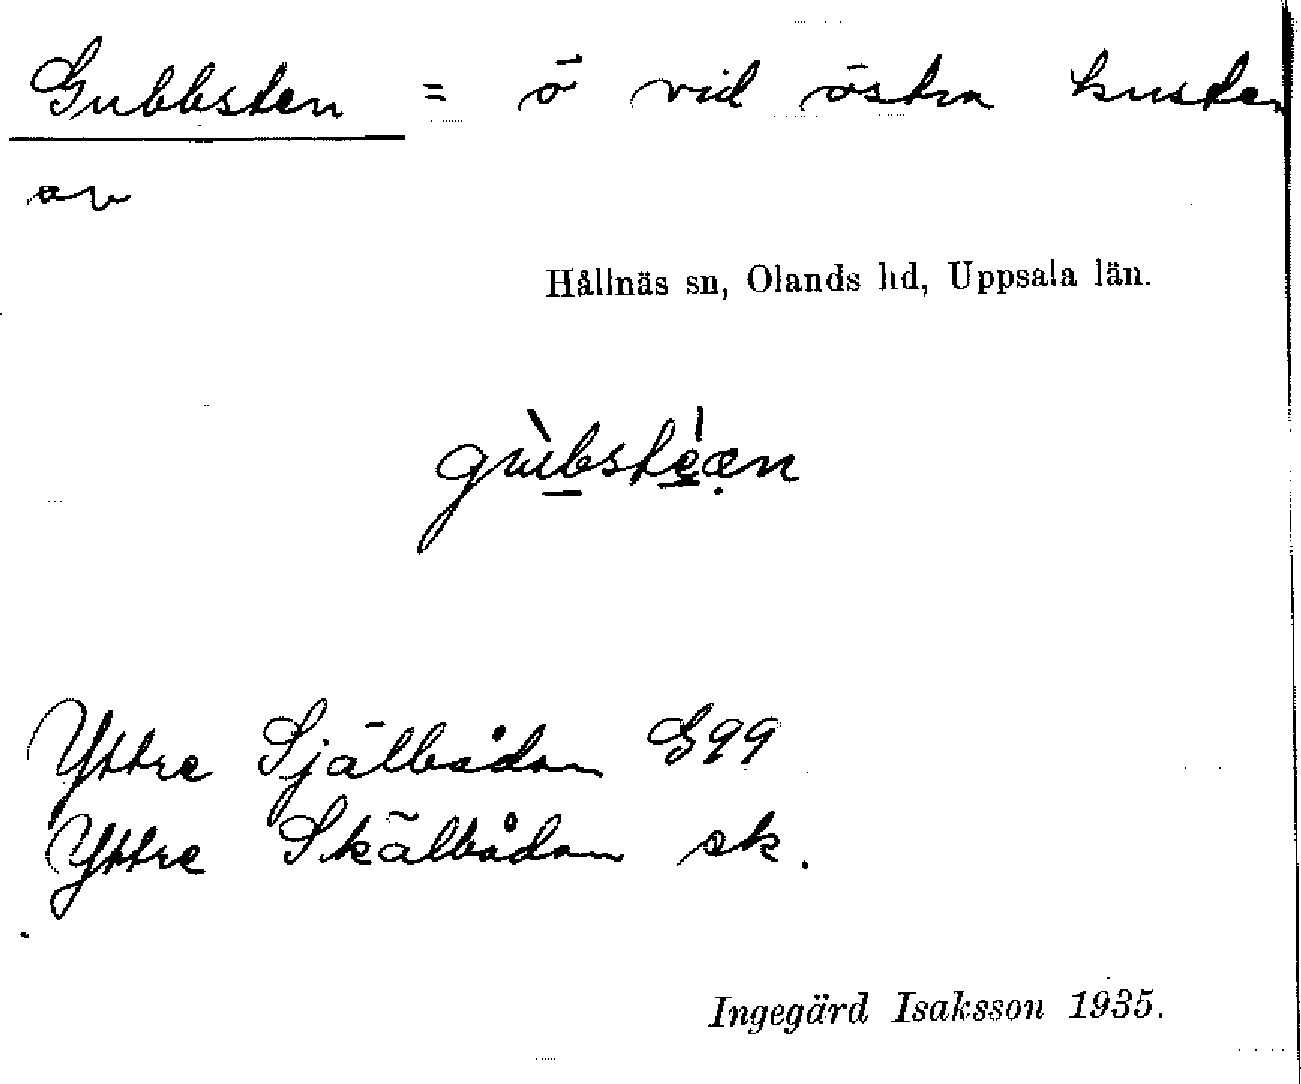 Gubbsten = ö vid östra kusten
av
Hållnäs sn, Olands hd, Uppsala län.
gu̇̀bste̱̍æ̣n
Yttre Själbådan G99
Yttre Skälbådan ek.
Ingegärd Isaksson 1935.